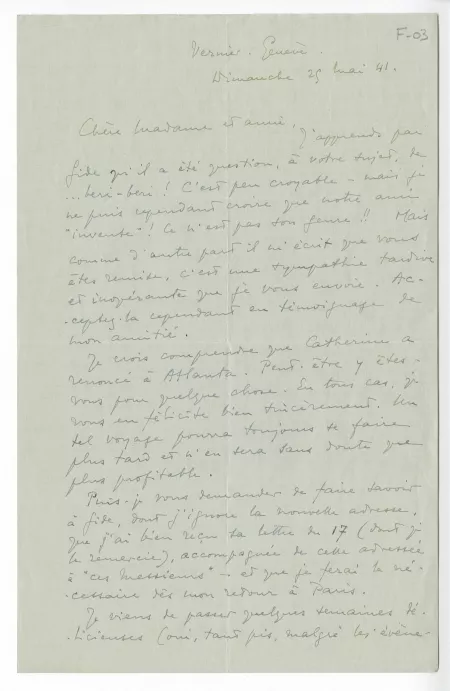 F-03
Vernier. Genève.
Dimanche 25 mai 41.
Chère Madame et amie,
J'apprends par
Gide qu'il a été question, à votre sujet, de
... beri-beri ! C'est peu croyable - mais je
ne puis cependant croire que notre ami
"invente" ! Ce n'est pas son genre !! Mais
comme d'autre part il m'écrit que vous
êtes remise, c'est une sympathie tardive
et inopérante que je vous envoie. Ac-
-ceptez-la cependant en témoignage de
mon amitié.
Je crois comprendre que Catherine a
renoncé à Atlanta. Peut-être y êtes-
vous pour quelque chose. En tous cas, je
vous en félicite bien sincèrement. Un
tel voyage pourra toujours se faire
plus tard et n'en sera sans doute que
plus profitable.
Puis-je vous demander de faire savoir
à Gide, dont j'ignore la nouvelle adresse,
que j'ai bien reçu sa lettre du 17 (dont je
le remercie), accompagnée de celle adressée
à "ces Messieurs" - et que je ferai le né-
-cessaire dès mon retour à Paris.
Je viens de passer quelques semaines dé-
-licieuses (oui, tant pis, malgré les évène-